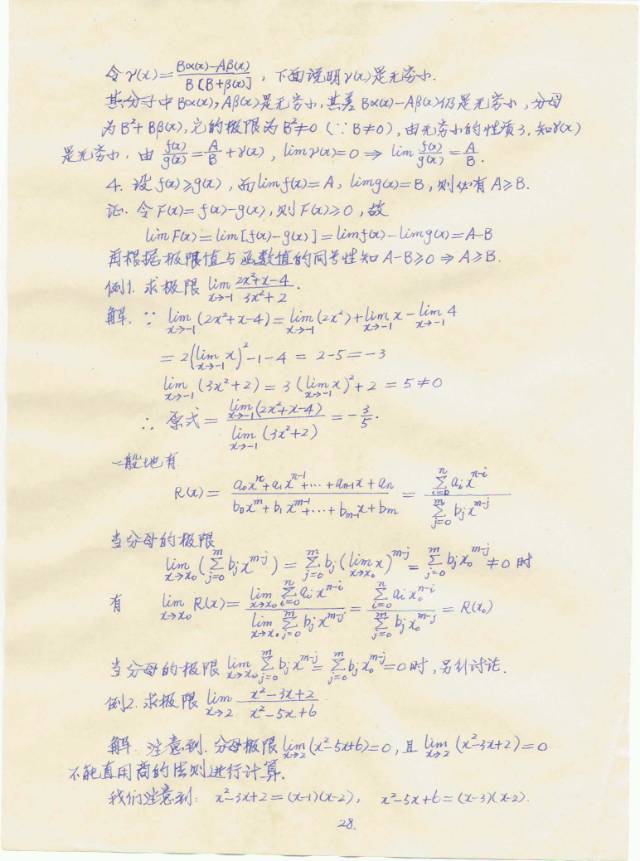 令 γ(x) = (Bα(x)-Aβ(x))/(B[B+β(x)]) , 下面说明γ(x)是无穷小.
其分子中Bα(x), Aβ(x)是无穷小, 其差Bα(x)-Aβ(x)仍是无穷小, 分母
为B²+Bβ(x), 它的极限为B²≠0 (∵B≠0), 由无穷小的性质3, 知γ(x)
是无穷小, 由 f(x)/g(x) = A/B + γ(x), lim γ(x)=0 ⇒ lim f(x)/g(x) = A/B.
4. 设 f(x)≥g(x), 而 lim f(x)=A, lim g(x)=B, 则必有 A≥B.
证. 令F(x)=f(x)-g(x), 则F(x)≥0, 故
lim F(x)=lim[f(x)-g(x)]=lim f(x)-lim g(x)=A-B
再根据极限值与函数值的同号性知 A-B≥0 ⇒ A≥B.
例1. 求极限 lim_{x→-1} (2x²+x-4)/(3x²+2).
解. ∵ lim_{x→-1}(2x²+x-4)=lim_{x→-1}(2x²)+lim_{x→-1} x - lim_{x→-1} 4
=2(lim_{x→-1} x)²-1-4 = 2-5=-3
lim_{x→-1}(3x²+2)=3(lim_{x→-1} x)²+2=5≠0
∴ 原式= lim_{x→-1}(2x²+x-4) / lim_{x→-1}(3x²+2) = -3/5.
一般地有
R(x)= (a₀xⁿ+a₁xⁿ⁻¹+…+aₙ₋₁x+aₙ)/(b₀xᵐ+b₁xᵐ⁻¹+…+bₘ₋₁x+bₘ) = ∑_{i=0}^{n} aᵢxⁿ⁻ⁱ / ∑_{j=0}^{m} bⱼxᵐ⁻ʲ
当分母的极限
lim_{x→x₀}(∑_{j=0}^{m} bⱼxᵐ⁻ʲ)=∑_{j=0}^{m} bⱼ(lim_{x→x₀} x)ᵐ⁻ʲ=∑_{j=0}^{m} bⱼx₀ᵐ⁻ʲ≠0 时
有 lim_{x→x₀} R(x)= lim_{x→x₀} ∑_{i=0}^{n} aᵢxⁿ⁻ⁱ / lim_{x→x₀} ∑_{j=0}^{m} bⱼxᵐ⁻ʲ = ∑_{i=0}^{n} aᵢx₀ⁿ⁻ⁱ / ∑_{j=0}^{m} bⱼx₀ᵐ⁻ʲ = R(x₀)
当分母的极限 lim_{x→x₀} ∑_{j=0}^{m} bⱼxᵐ⁻ʲ=∑_{j=0}^{m} bⱼx₀ᵐ⁻ʲ=0时, 另外讨论.
例2. 求极限 lim_{x→2} (x²-3x+2)/(x²-5x+6)
解. 注意到. 分母极限 lim_{x→2}(x²-5x+6)=0, 且 lim_{x→2}(x²-3x+2)=0
不能直用商的法则进行计算.
我们注意到: x²-3x+2=(x-1)(x-2), x²-5x+6=(x-3)(x-2).
28.